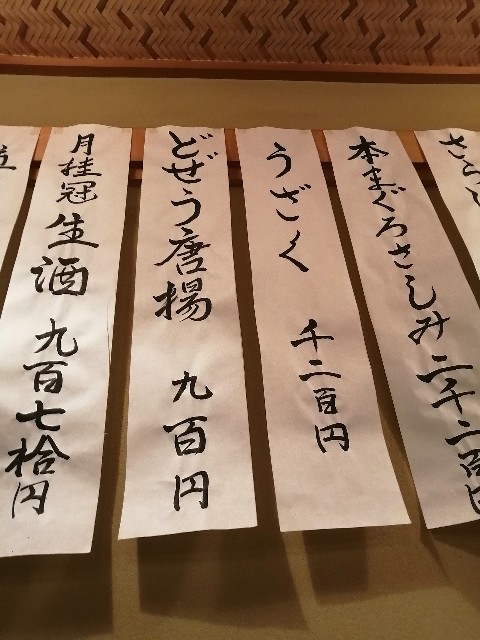 さらし
本まぐろさしみ 二千二百円
うざく 千二百円
どぜう唐揚 九百円
月桂冠 生酒 九百七拾円